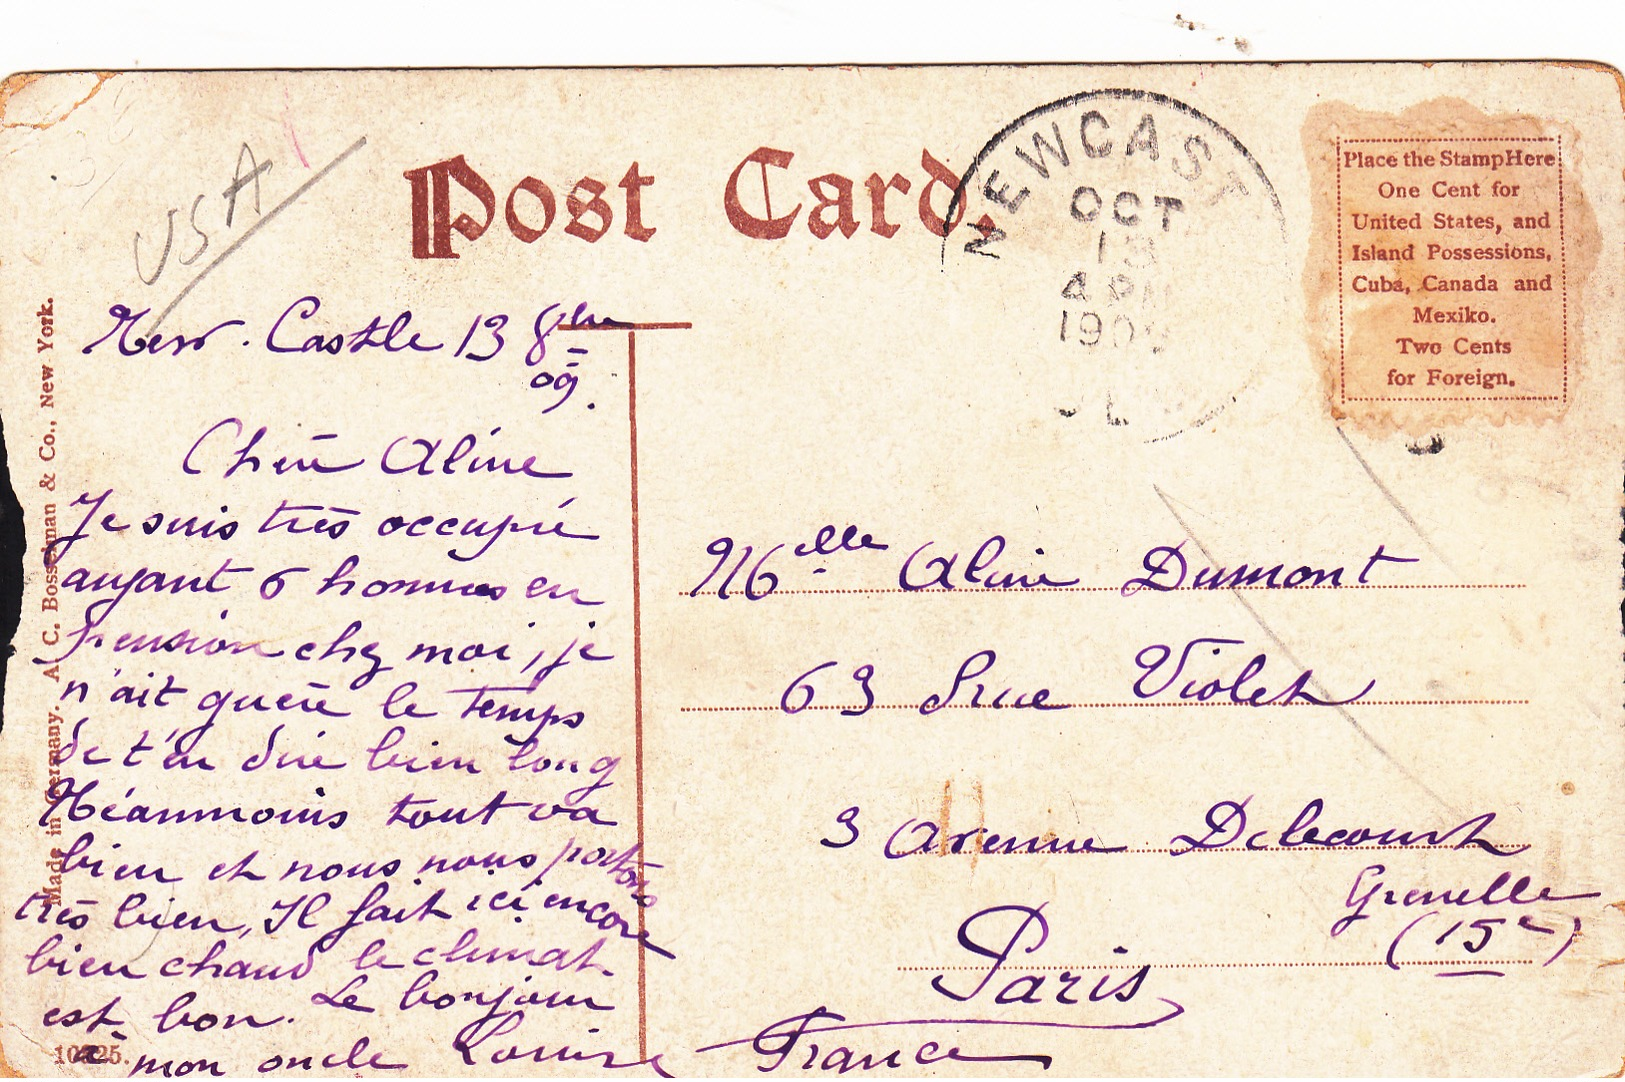 USA
Post Card.
NEWCAST
OCT
13
4 PM
1909
Place the Stamp Here
One Cent for
United States, and
Island Possessions,
Cuba, Canada and
Mexiko.
Two Cents
for Foreign.
New. Castle 13 8bre
09.
Chère Aline
Je suis très occupé
ayant 6 hommes en
pension chez moi, je
n'ait guère le temps
de t'en dire bien long
Néanmoins tout va
bien et nous nous portons
très bien, Il fait ici encore
bien chaud le climat
est bon. Le bonjour
à mon oncle Louise
Melle Aline Dumont
63 Rue Violet
3 Avenue Delecourt
Grenelle
(15e)
Paris
France
Made in Germany. A. C. Bosselman & Co., New York.